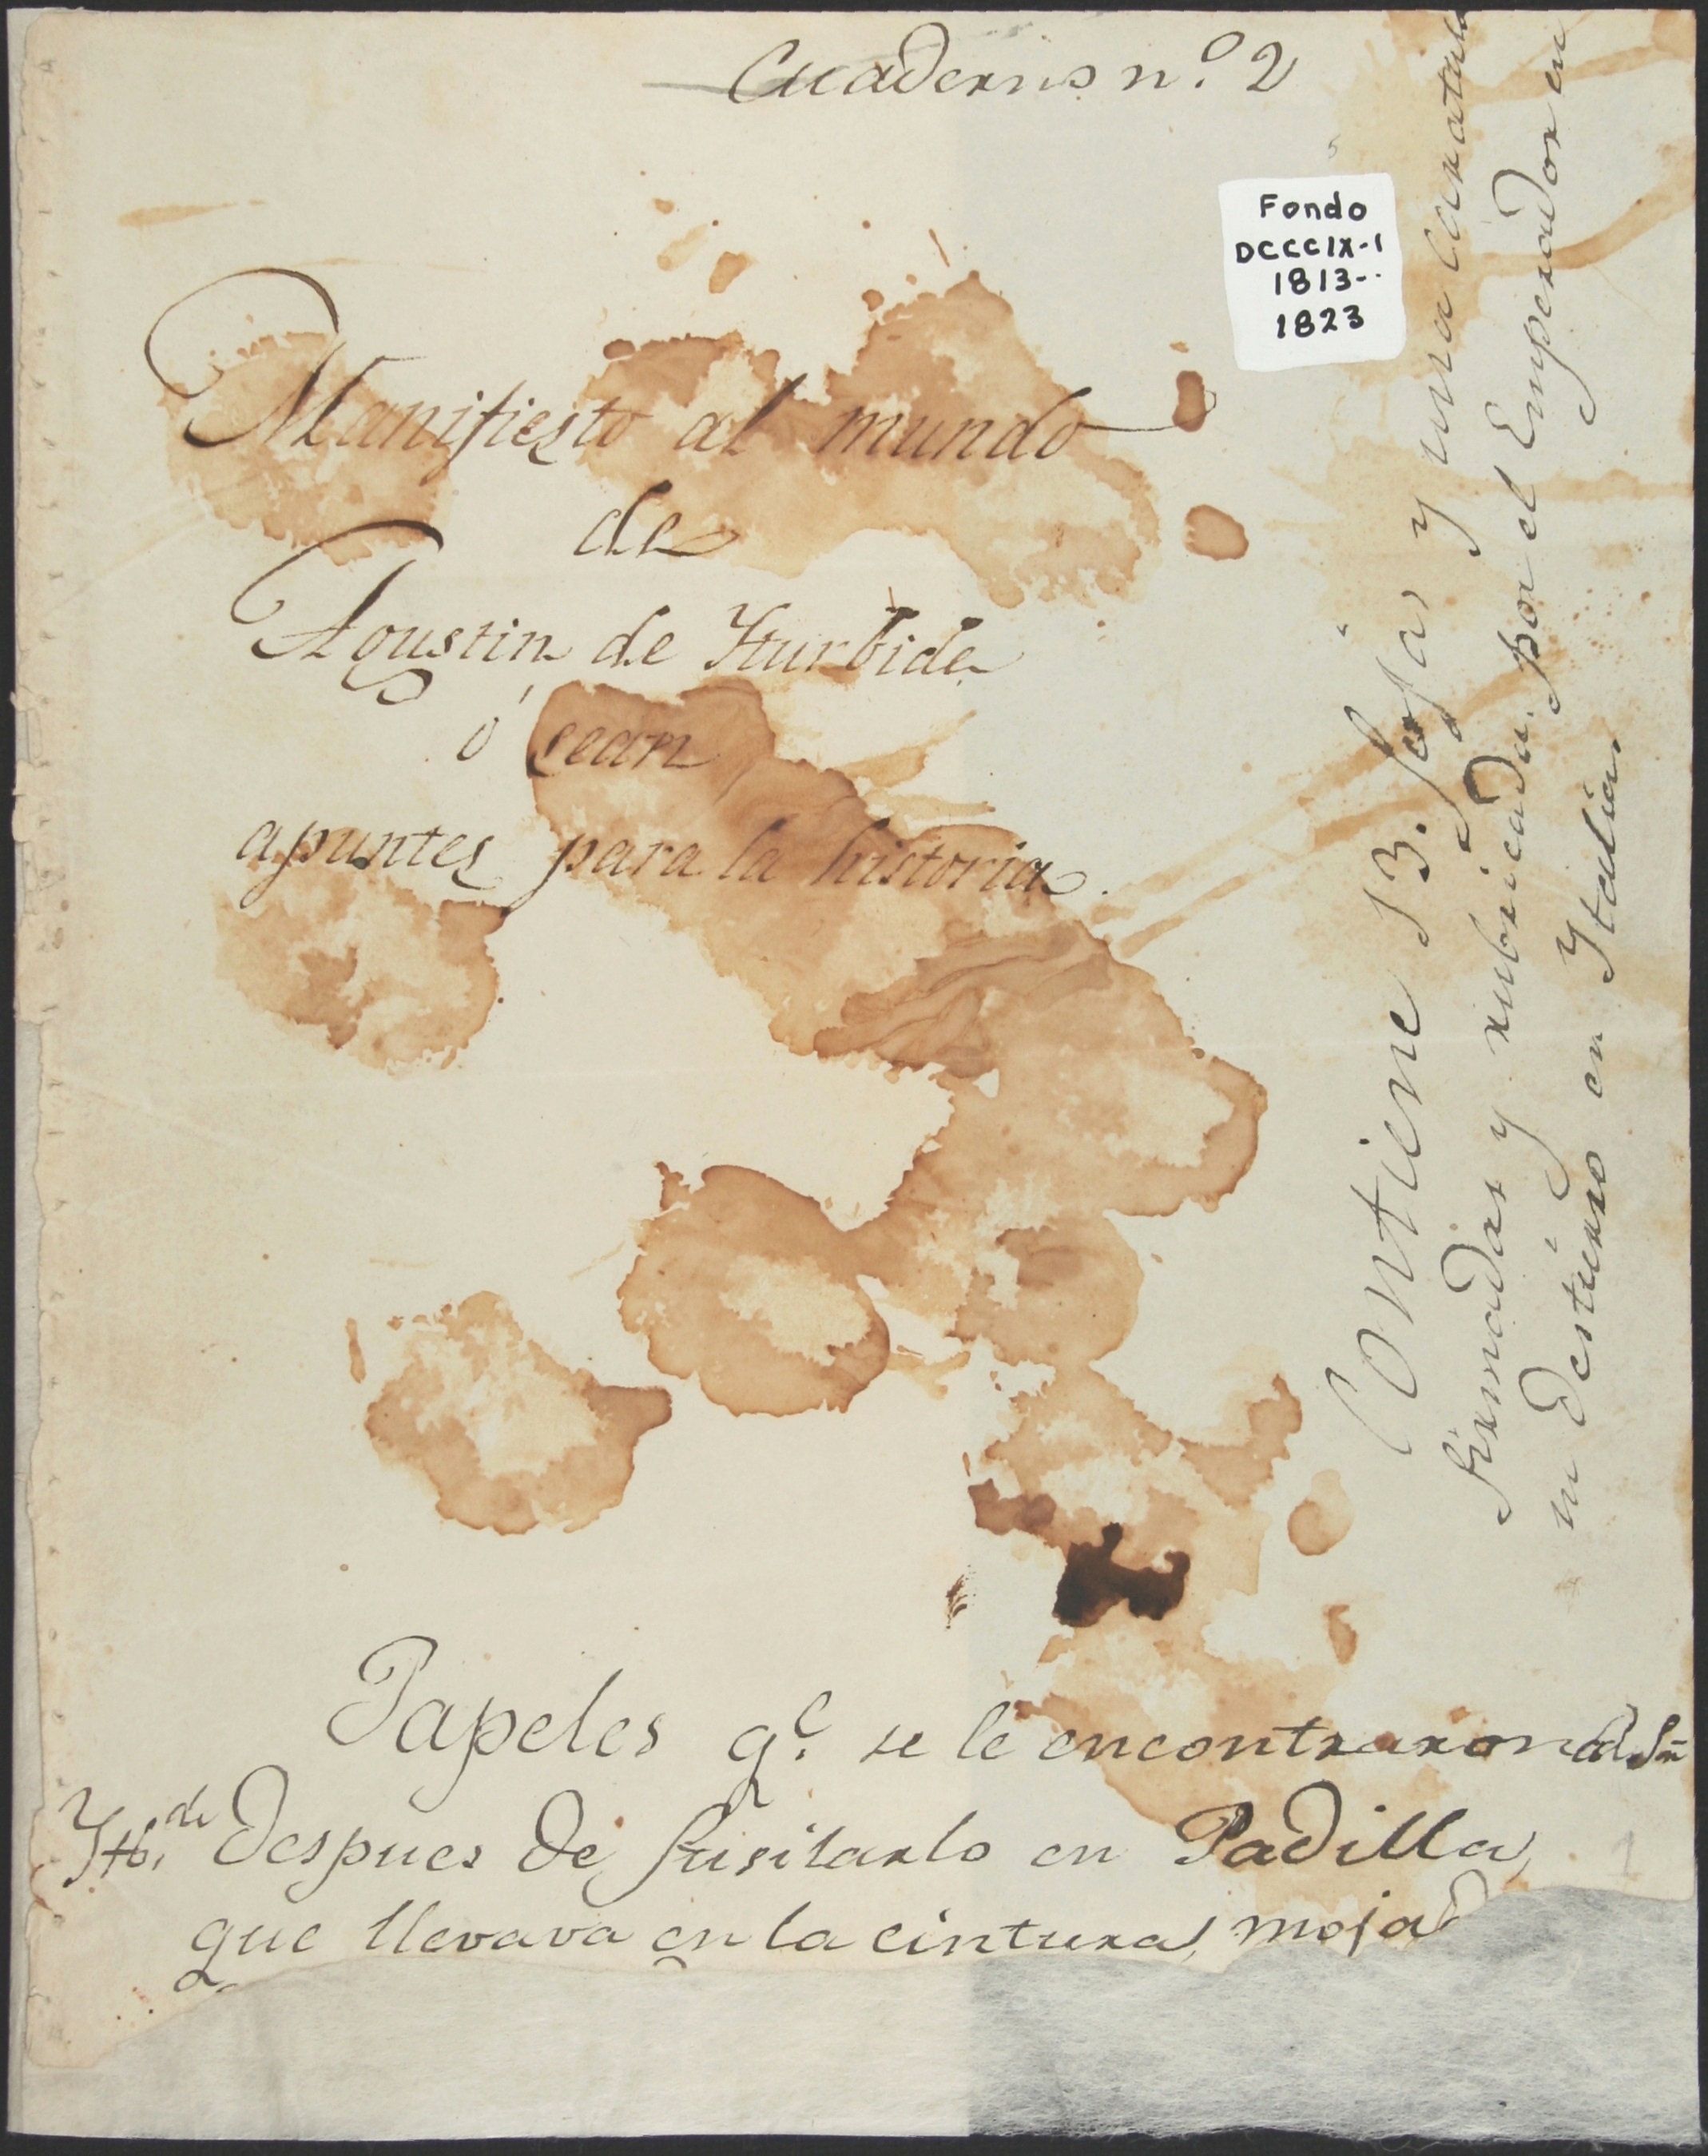 Cuaderno n.º 2
Fondo
DCCCIX-1
1813--
1823
Manifiesto al mundo
de
Agustin de Yturbide
ó sean
apuntes para la historia.
Contiene 13. fojas y una caratula
firmadas y rubricadas por el Emperador en
su destierro en Ytalia
Papeles q.e se le encontraron al Sr
Ytb.de despues de fusilarlo en Padilla
que llevava en la cintura, mojad